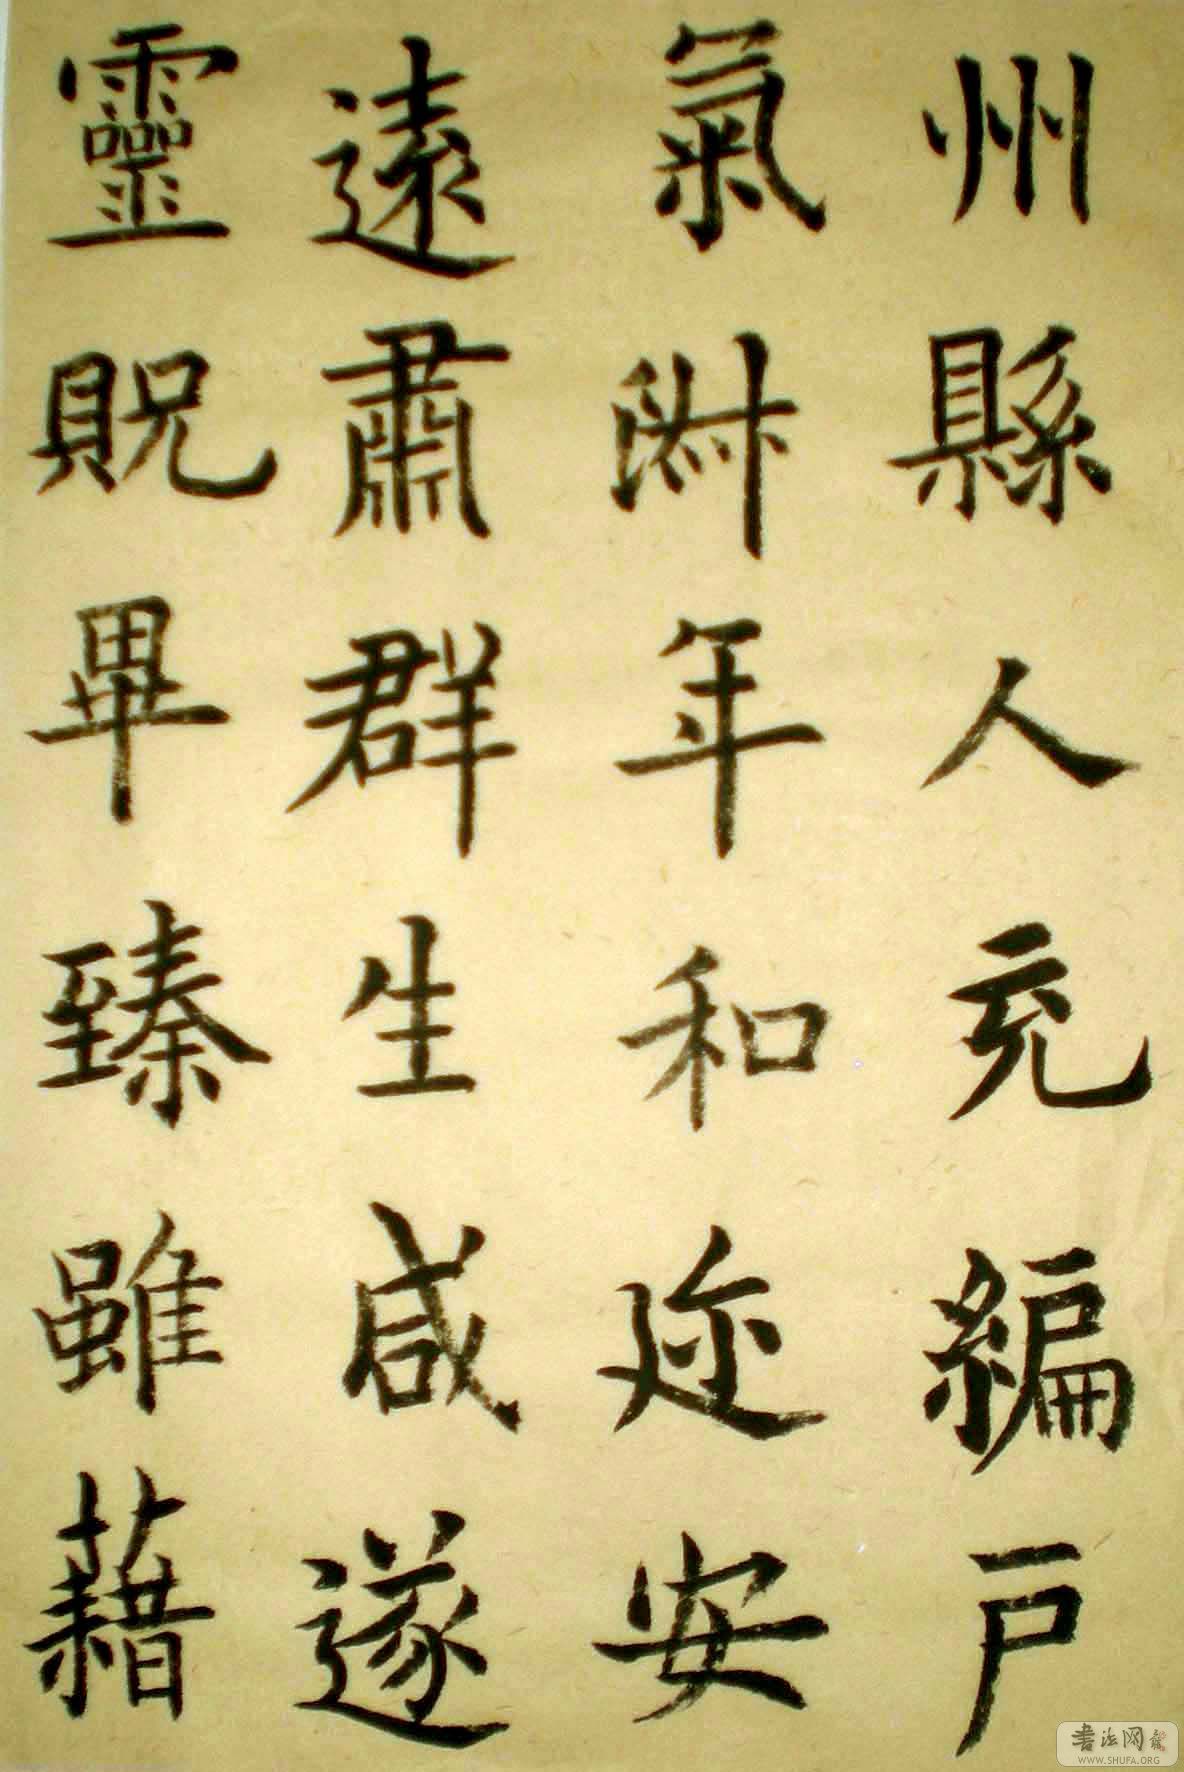 州縣人充編户
氣淑年和迩安
遠肅群生咸遂
靈貺畢臻雖藉
書法网
WWW.SHUFA.ORG